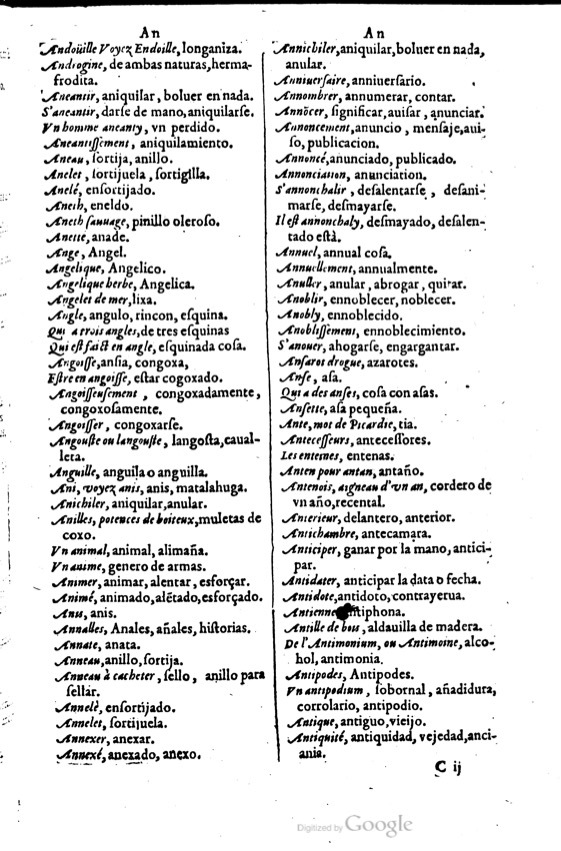 An
Andoüille Voyez Endoille, longaniza.
Androgine, de ambas naturas, herma-
frodita.
Aneantir, aniquilar, boluer en nada.
S'aneantir, darſe de mano, aniquilarſe.
Vn homme aneanty, vn perdido.
Aneantiſſement, aniquilamiento.
Aneau, ſortija, anillo.
Anelet, ſortijuela, ſortigilla.
Anelé, enſortijado.
Aneth, eneldo.
Aneth ſauuage, pinillo oleroſo.
Anette, anade.
Ange, Angel.
Angelique, Angelico.
Angelique herbe, Angelica.
Angelet de mer, lixa.
Angle, angulo, rincon, eſquina.
Qui a trois angles, de tres eſquinas
Qui eſt faict en angle, eſquinada coſa.
Angoiſſe, anſia, congoxa,
Eſtre en angoiſſe, eſtar cogoxado.
Angoiſſeuſement, congoxadamente,
congoxoſamente.
Angoiſſer, congoxarſe.
Angouſte ou langouſte, langoſta, caual-
leta.
Anguille, anguila o anguilla.
Ani, voyez anis, anis, matalahuga.
Anichiler, aniquilar, anular.
Anilles, potences de boiteux, muletas de
coxo.
Vn animal, animal, alimaña.
Vn anime, genero de armas.
Animer, animar, alentar, esforçar.
Animé, animado, alẽtado, esforçado.
Anis, anis.
Annalles, Anales, añales, hiſtorias.
Annate, anata.
Anneau, anillo, ſortija.
Anneau à cacheter, ſello, anillo para
ſellar.
Annelé, enſortijado.
Annelet, ſortijuela.
Annexer, anexar.
Annexé, anexado, anexo.
An
Annichiler, aniquilar, boluer en nada,
anular.
Anniuerſaire, anniuerſario.
Annombrer, annumerar, contar.
Annõcer, ſignificar, auiſar, anunciar.
Annoncement, anuncio, menſaje, aui-
ſo, publicacion.
Annoncé, anunciado, publicado.
Annonciation, anunciation.
S'annonchalir, deſalentarſe, deſani-
marſe, deſmayarſe.
Il eſt annonchaly, deſmayado, deſalen-
tado eſtà.
Annuel, annual coſa.
Annuellement, annualmente.
Anuller, anular, abrogar, quitar.
Anoblir, ennoblecer, noblecer.
Anobly, ennoblecido.
Anobliſſement, ennoblecimiento.
S'anouer, ahogarſe, engargantar.
Anſaros drogue, azarotes.
Anſe, aſa.
Qui a des anſes, coſa con aſas.
Anſette, aſa pequeña.
Ante, mot de Picardie, tia.
Anteceſſeurs, anteceſſores.
Les entennes, entenas.
Anten pour antan, antaño.
Antenois, aigneau d'vn an, cordero de
vn año, recental.
Anterieur, delantero, anterior.
Antichambre, antecamara.
Anticiper, ganar por la mano, antici-
par.
Antidater, anticipar la data o fecha.
Antidote, antidoto, contrayerua.
Antienne, tiphona.
Antille de bois, aldauilla de madera.
De l'Antimonium, ou Antimoine, alco-
hol, antimonia.
Antipodes, Antipodes.
Vn antipodium, ſobornal, añadidura,
corrolario, antipodio.
Antique, antiguo, vieijo.
Antiquité, antiquidad, vejedad, anci-
ania.
C ij
Digitized by Google